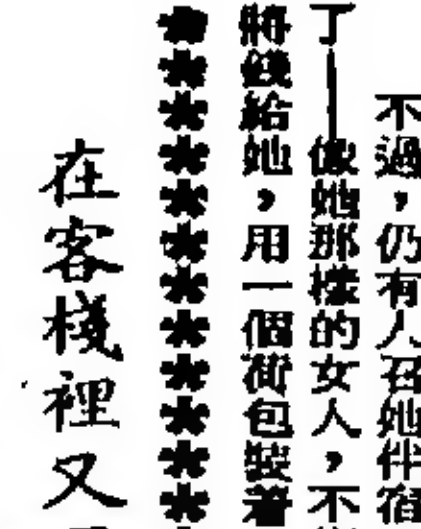 不過，仍有人召她伴宿
了——像她那樣的女人，不
將錢給她，用一個荷包裝着
＊＊＊＊＊＊＊＊＊＊＊＊
在客棧裡又